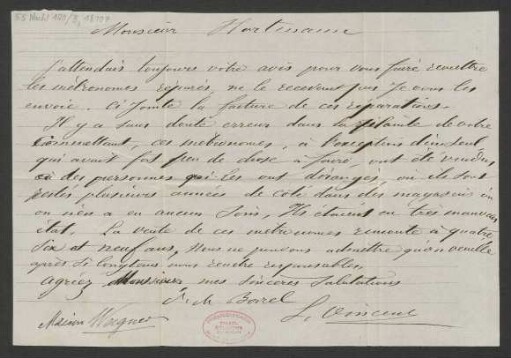 Monsieur Hartmann
J'attendais toujours votre avis pour vous faire remettre
les métronomes réparés, ne le recevant pas je vous les
envoie. Ci Jointe la facture de ces réparations.
Il y a sans doute erreur dans la plainte de votre
Committant, ces métronomes, à l'exception d'un seul
qui avait fort peu de chose à faire, ont été vendus
à des personnes qui les ont dérangés, ou ils sont
restés plusieurs années de coté dans des magasins ou
on n'en a eu aucun soin, Ils étaient en très mauvais
état. La vente de ces métronomes remonte à quatre
six et neuf ans, nous ne pouvons admettre qu'on veuille
après si longtems nous rendre responsables.
Agréez Monsieur mes sincères salutations
de Borel
L. Vincent
Maison Wagner